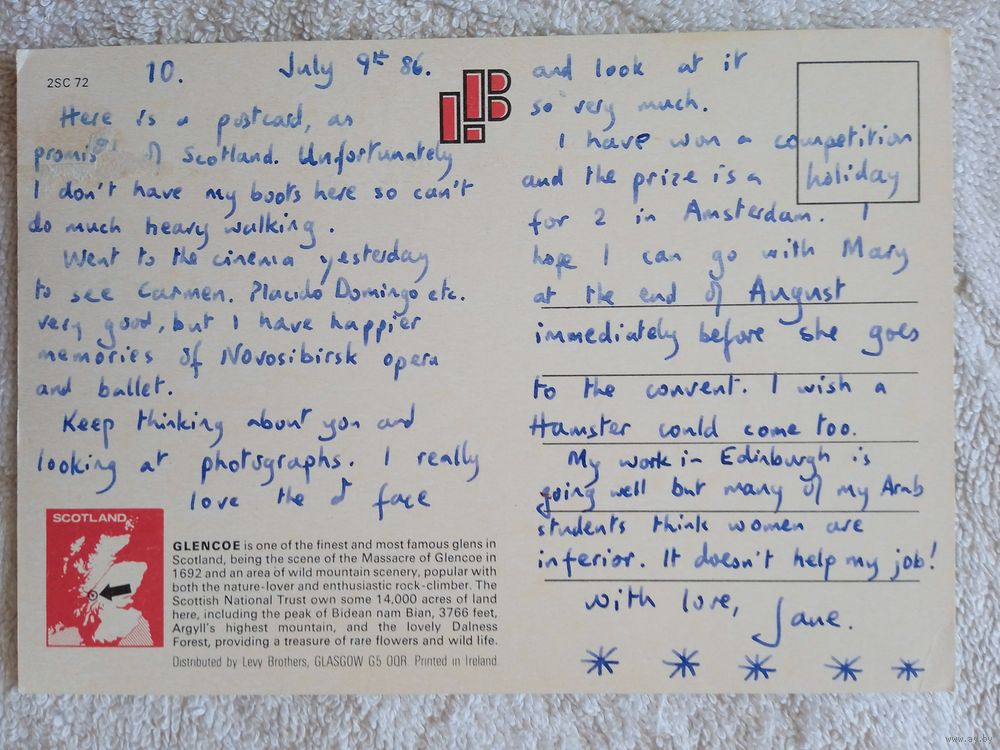 2SC 72
10. July 9th 86.
Here is a postcard, as
promis of Scotland. Unfortunately
I don't have my boots here so can't
do much heavy walking.
Went to the cinema yesterday
to see Carmen. Placido Domingo etc.
very good, but I have happier
memories of Novosibirsk opera
and ballet.
Keep thinking about you and
looking at photographs. I really
love the face
and look at it
so very much.
I have won a competition
and the prize is a holiday
for 2 in Amsterdam. I
hope I can go with Mary
at the end of August
immediately before she goes
to the convent. I wish a
Hamster could come too.
My work in Edinburgh is
going well but many of my Arab
students think women are
inferior. It doesn't help my job!
With love, Jane.
SCOTLAND
GLENCOE is one of the finest and most famous glens in
Scotland, being the scene of the Massacre of Glencoe in
1692 and an area of wild mountain scenery, popular with
both the nature-lover and enthusiastic rock-climber. The
Scottish National Trust own some 14,000 acres of land
here, including the peak of Bidean nam Bian, 3766 feet,
Argyll's highest mountain, and the lovely Dalness
Forest, providing a treasure of rare flowers and wild life.
Distributed by Levy Brothers, GLASGOW G5 0QR Printed in Ireland
www.ay.by